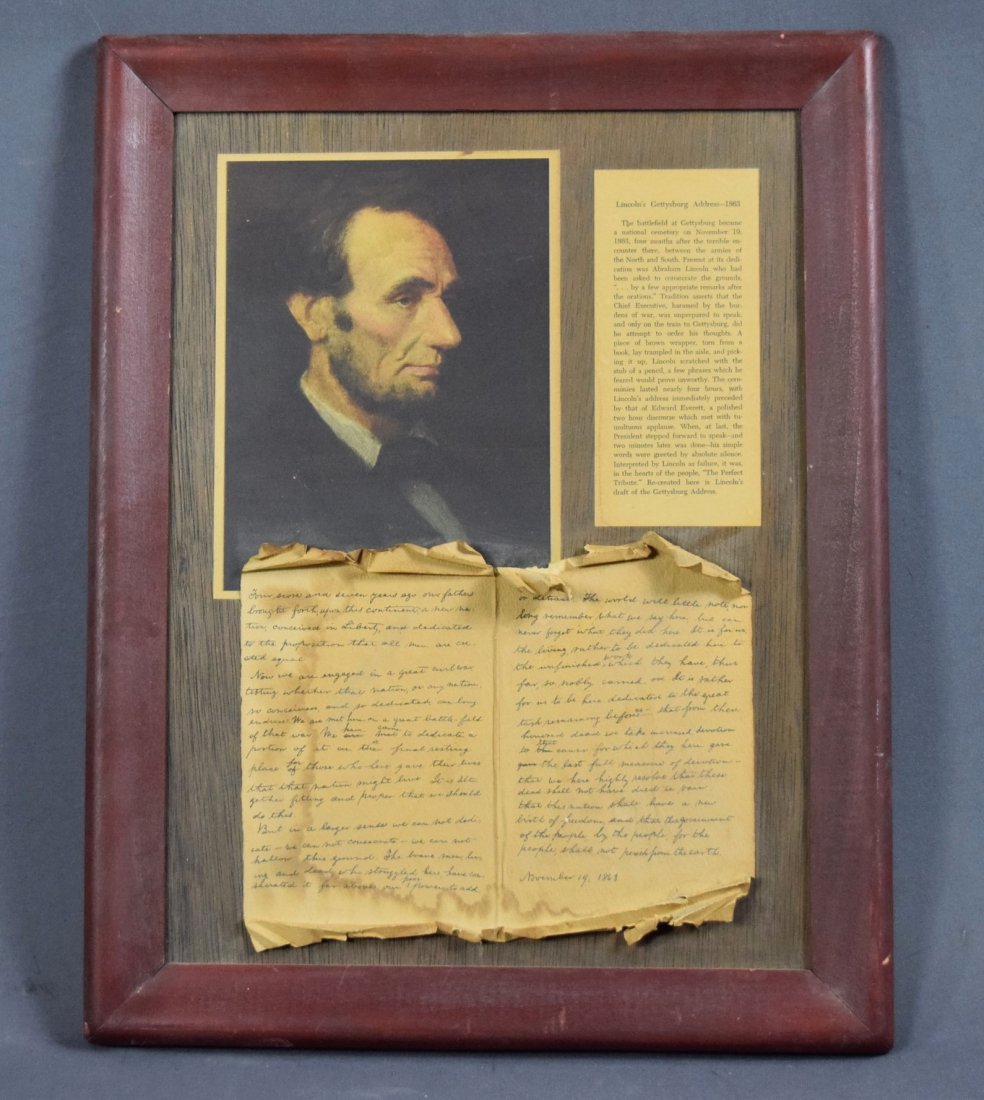 Lincoln's Gettysburg Address—1863
The battlefield at Gettysburg became
a national cemetery on November 19,
1863, four months after the terrible en-
counter there, between the armies of
the North and South. Present at its dedi-
cation was Abraham Lincoln who had
been asked to consecrate the grounds,
". . . by a few appropriate remarks after
the orations." Tradition asserts that the
Chief Executive, harassed by the bur-
dens of war, was unprepared to speak,
and only on the train to Gettysburg, did
he attempt to order his thoughts. A
piece of brown wrapper, torn from a
book, lay trampled in the aisle, and pick-
ing it up, Lincoln scratched with the
stub of a pencil, a few phrases which he
feared would prove unworthy. The cere-
monies lasted nearly four hours, with
Lincoln's address immediately preceded
by that of Edward Everett, a polished
two hour discourse which met with tu-
multuous applause. When, at last, the
President stepped forward to speak—and
two minutes later was done—his simple
words were greeted by absolute silence.
Interpreted by Lincoln as failure, it was,
in the hearts of the people, "The Perfect
Tribute." Re-created here is Lincoln's
draft of the Gettysburg Address.
Four score and seven years ago our fathers
brought forth, upon this continent, a new na-
tion, conceived in Liberty, and dedicated
to the proposition that all men are cre-
ated equal.
Now we are engaged in a great civil war,
testing whether that nation, or any nation,
so conceived, and so dedicated, can long
endure. We are met here on a great battle-field
of that war. We have come to dedicate a
portion of it as the final resting
place for those who here gave their lives
that that nation might live. It is alto-
gether fitting and proper that we should
do this.
But in a larger sense we can not dedi-
cate — we can not consecrate — we can not
hallow this ground. The brave men, liv-
ing and dead, who struggled here have con-
secrated it far above our poor power to add
or detract. The world will little note, nor
long remember what we say here, but can
never forget what they did here. It is for us,
the living, rather to be dedicated here to
the unfinished work which they have, thus
far, so nobly carried on. It is rather
for us to be here dedicated to the great
task remaining before us — that from these
honored dead we take increased devotion
to that cause for which they here gave
the last full measure of devotion —
that we here highly resolve that these
dead shall not have died in vain
that this nation shall have a new
birth of freedom, and that this government
of the people by the people for the
people, shall not perish from the earth.
November 19, 1863